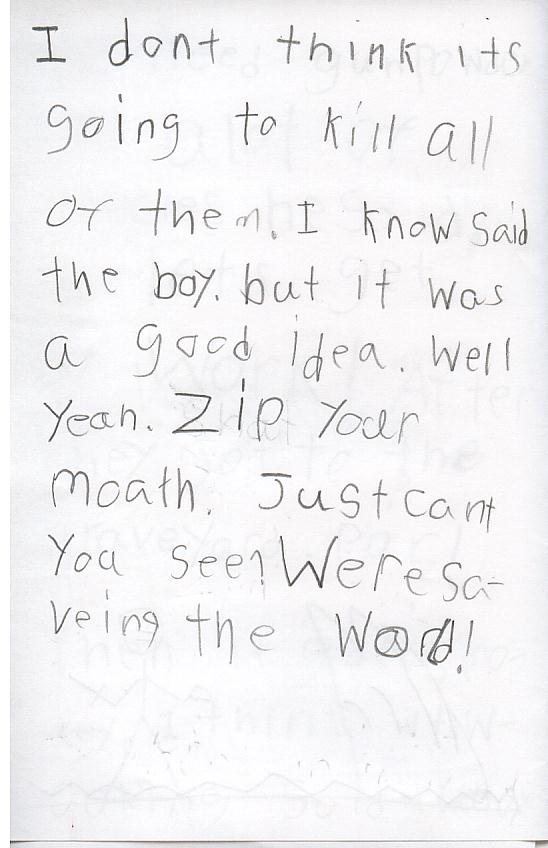 I dont think its
going to kill all
of them. I know said
the boy. but it was
a good idea. Well
Yeah. Zip Your
moath. Just cant
You see? Were sa-
veing the Word!